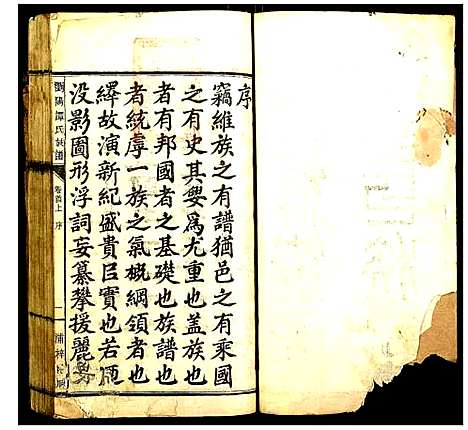 序
竊維族之有譜猶邑之有乘國
之有史其要為尤重也蓋族也
者有邦國者之基礎也族譜也
者統厚一族之氣概綱領者也
繹故演新紀盛貴臣實也若
沒影圖形浮詞妄纂攀援麗
瀏陽譚氏族譜
卷首上 序
一